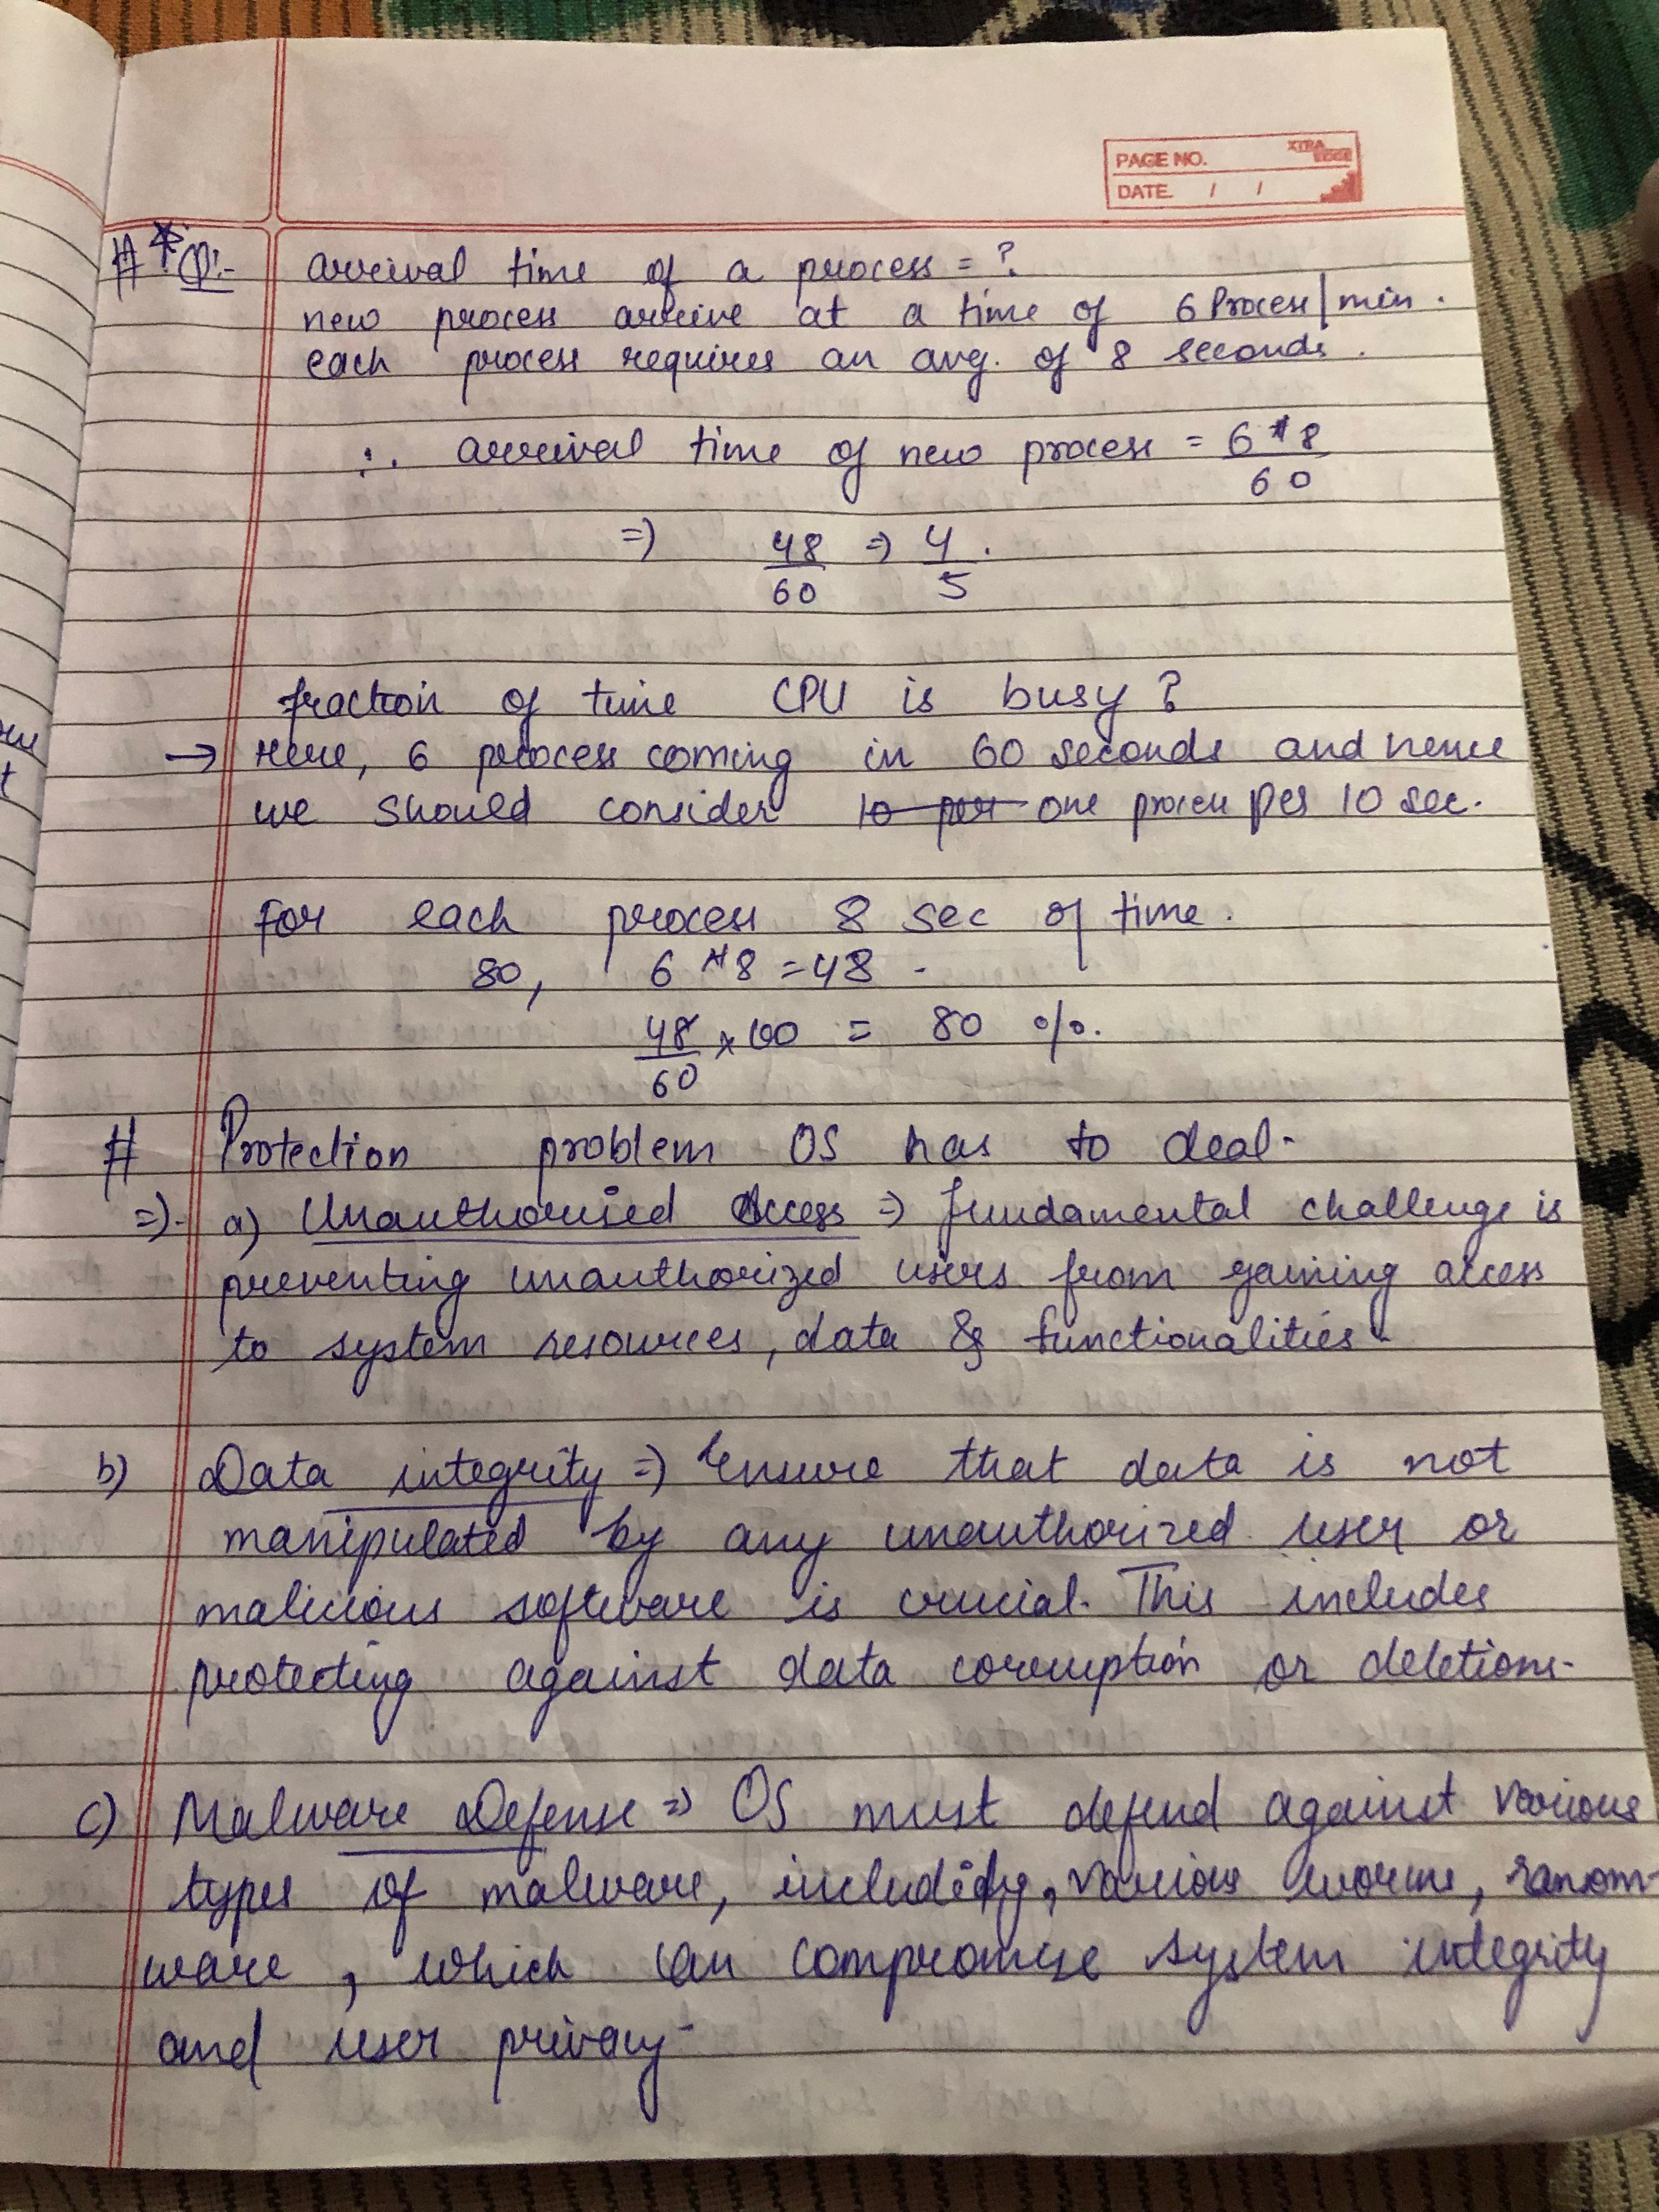 XTRA EDGE
PAGE NO.
DATE. / /
# * Q:- arrival time of a process = ?
new process arrive at a time of 6 Process/min.
each process requires an avg. of 8 seconds.
∴ arrival time of new process = 6 * 8 / 60
=> 48/60 => 4/5.
fraction of time CPU is busy?
→ Here, 6 process coming in 60 seconds and hence
we should consider 10 per one process per 10 sec.
For each process 8 sec of time.
80, 6 * 8 = 48
48/60 × 100 = 80 %.
# Protection problem OS has to deal.
=> a) Unauthorised Access => fundamental challenge is
preventing unauthorized users from gaining access
to system resources, data & functionalities.
b) Data integrity => Ensure that data is not
manipulated by any unauthorized user or
malicious software is crucial. This includes
protecting against data corruption or deletions.
c) Malware Defense => OS must defend against various
types of malware, including, various worms, ransom-
ware, which can compromise system integrity
and user privacy.